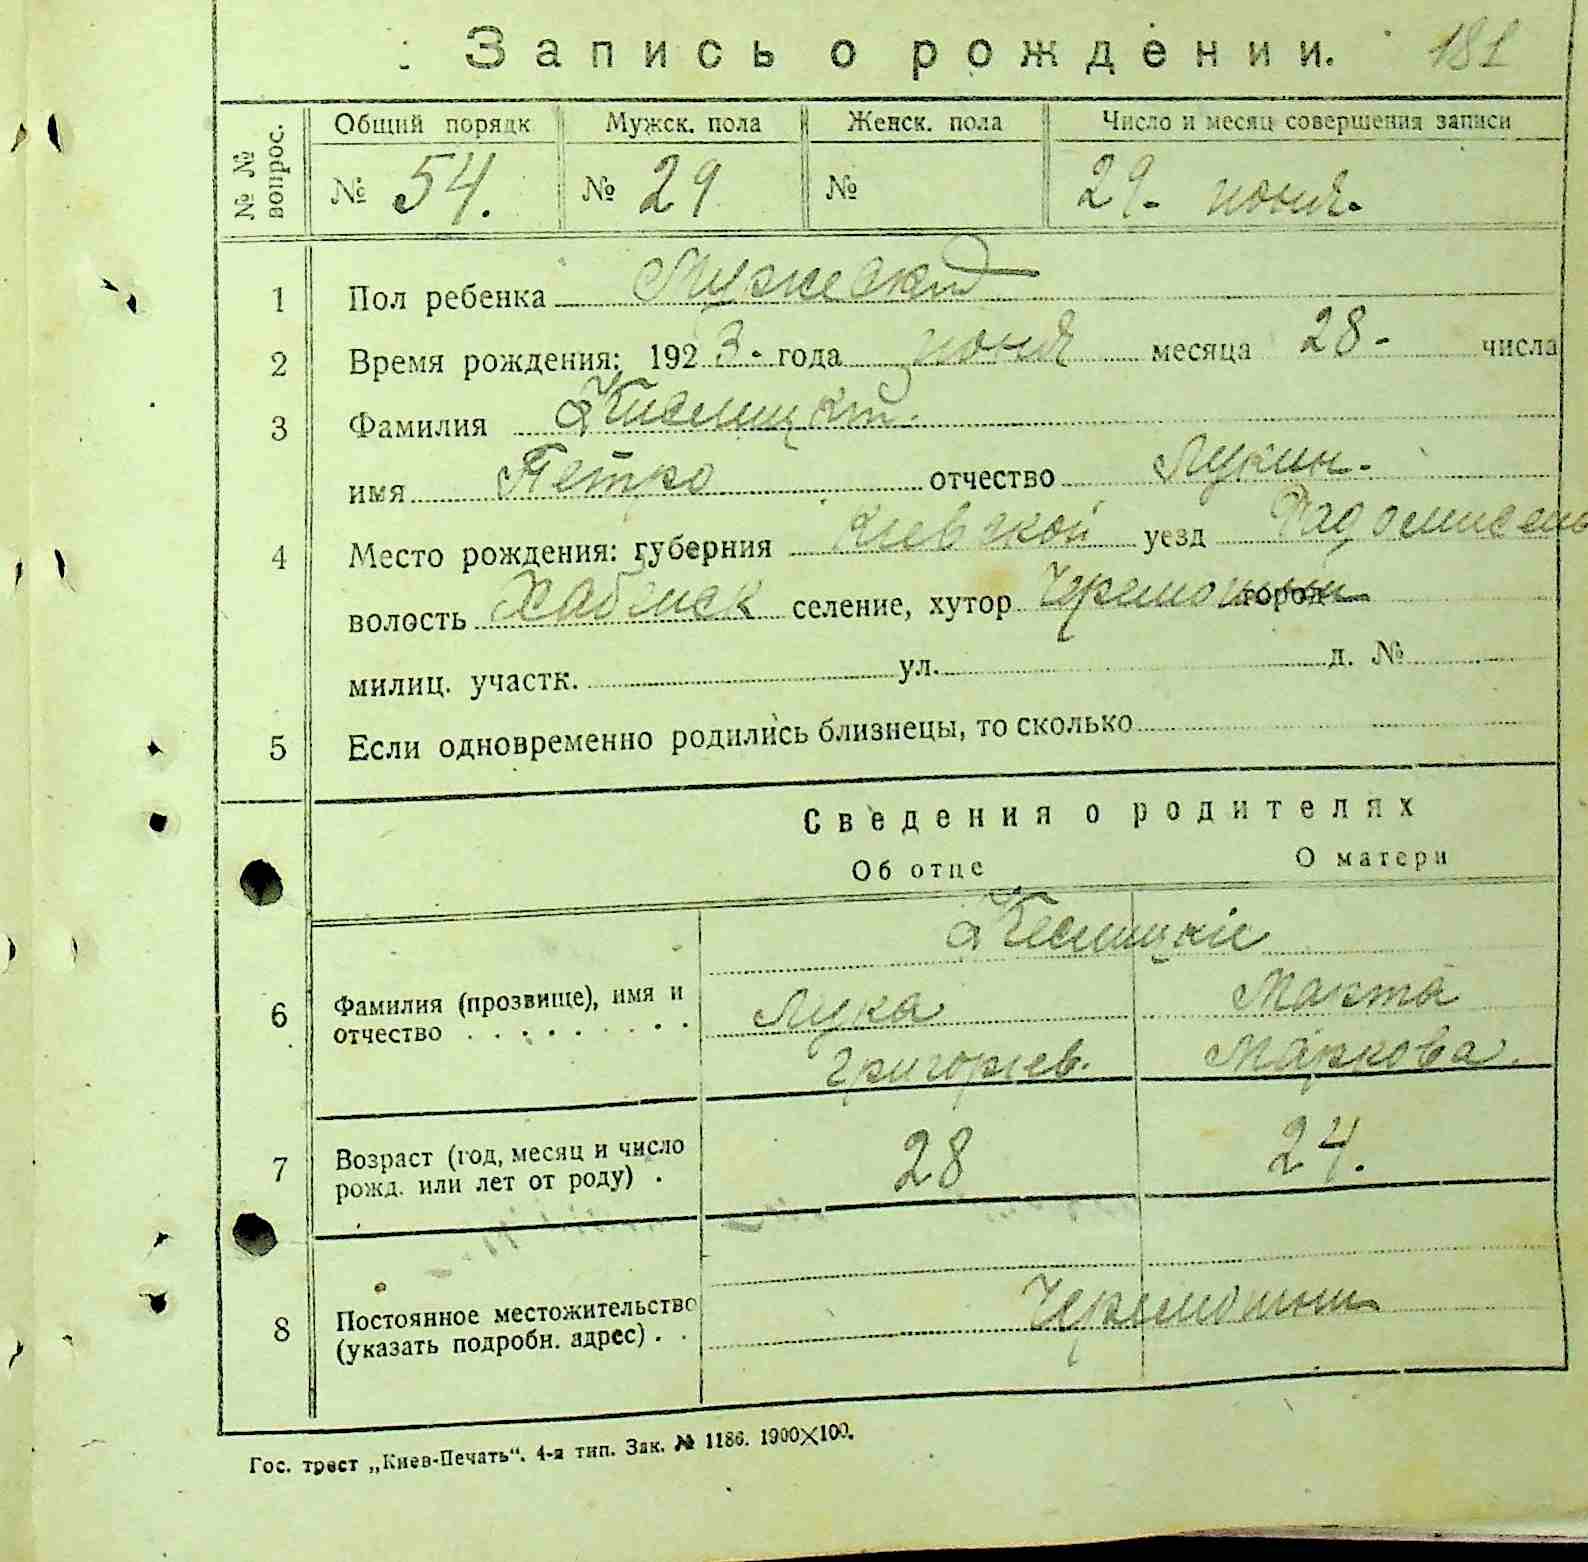 Запись о рождении. 181
№ № вопрос.
Общий порядк Мужск. пола Женск. пола Число и месяц совершения записи
№ 54. № 29 № 29. июня.
1 Пол ребенка Мужеский
2 Время рождения: 1923. года июня месяца 28. числа
3 Фамилия Кислицкий.
имя Петро отчество Лукин.
4 Место рождения: губерния Киевской уезд Радомисль
волость Хабенск селение, хутор город
милиц. участк. ул. д. №
5 Если одновременно родились близнецы, то сколько
Сведения о родителях
Об отце О матери
6 Фамилия (прозвище), имя и отчество
Лука
Григорьев.
Маркова.
7 Возраст (год, месяц и число рожд. или лет от роду) . 28 24.
8 Постоянное местожительство (указать подробн. адрес) . .
Гос. трест „Киев-Печать“. 4-я тип. Зак. № 1186. 1900×100.